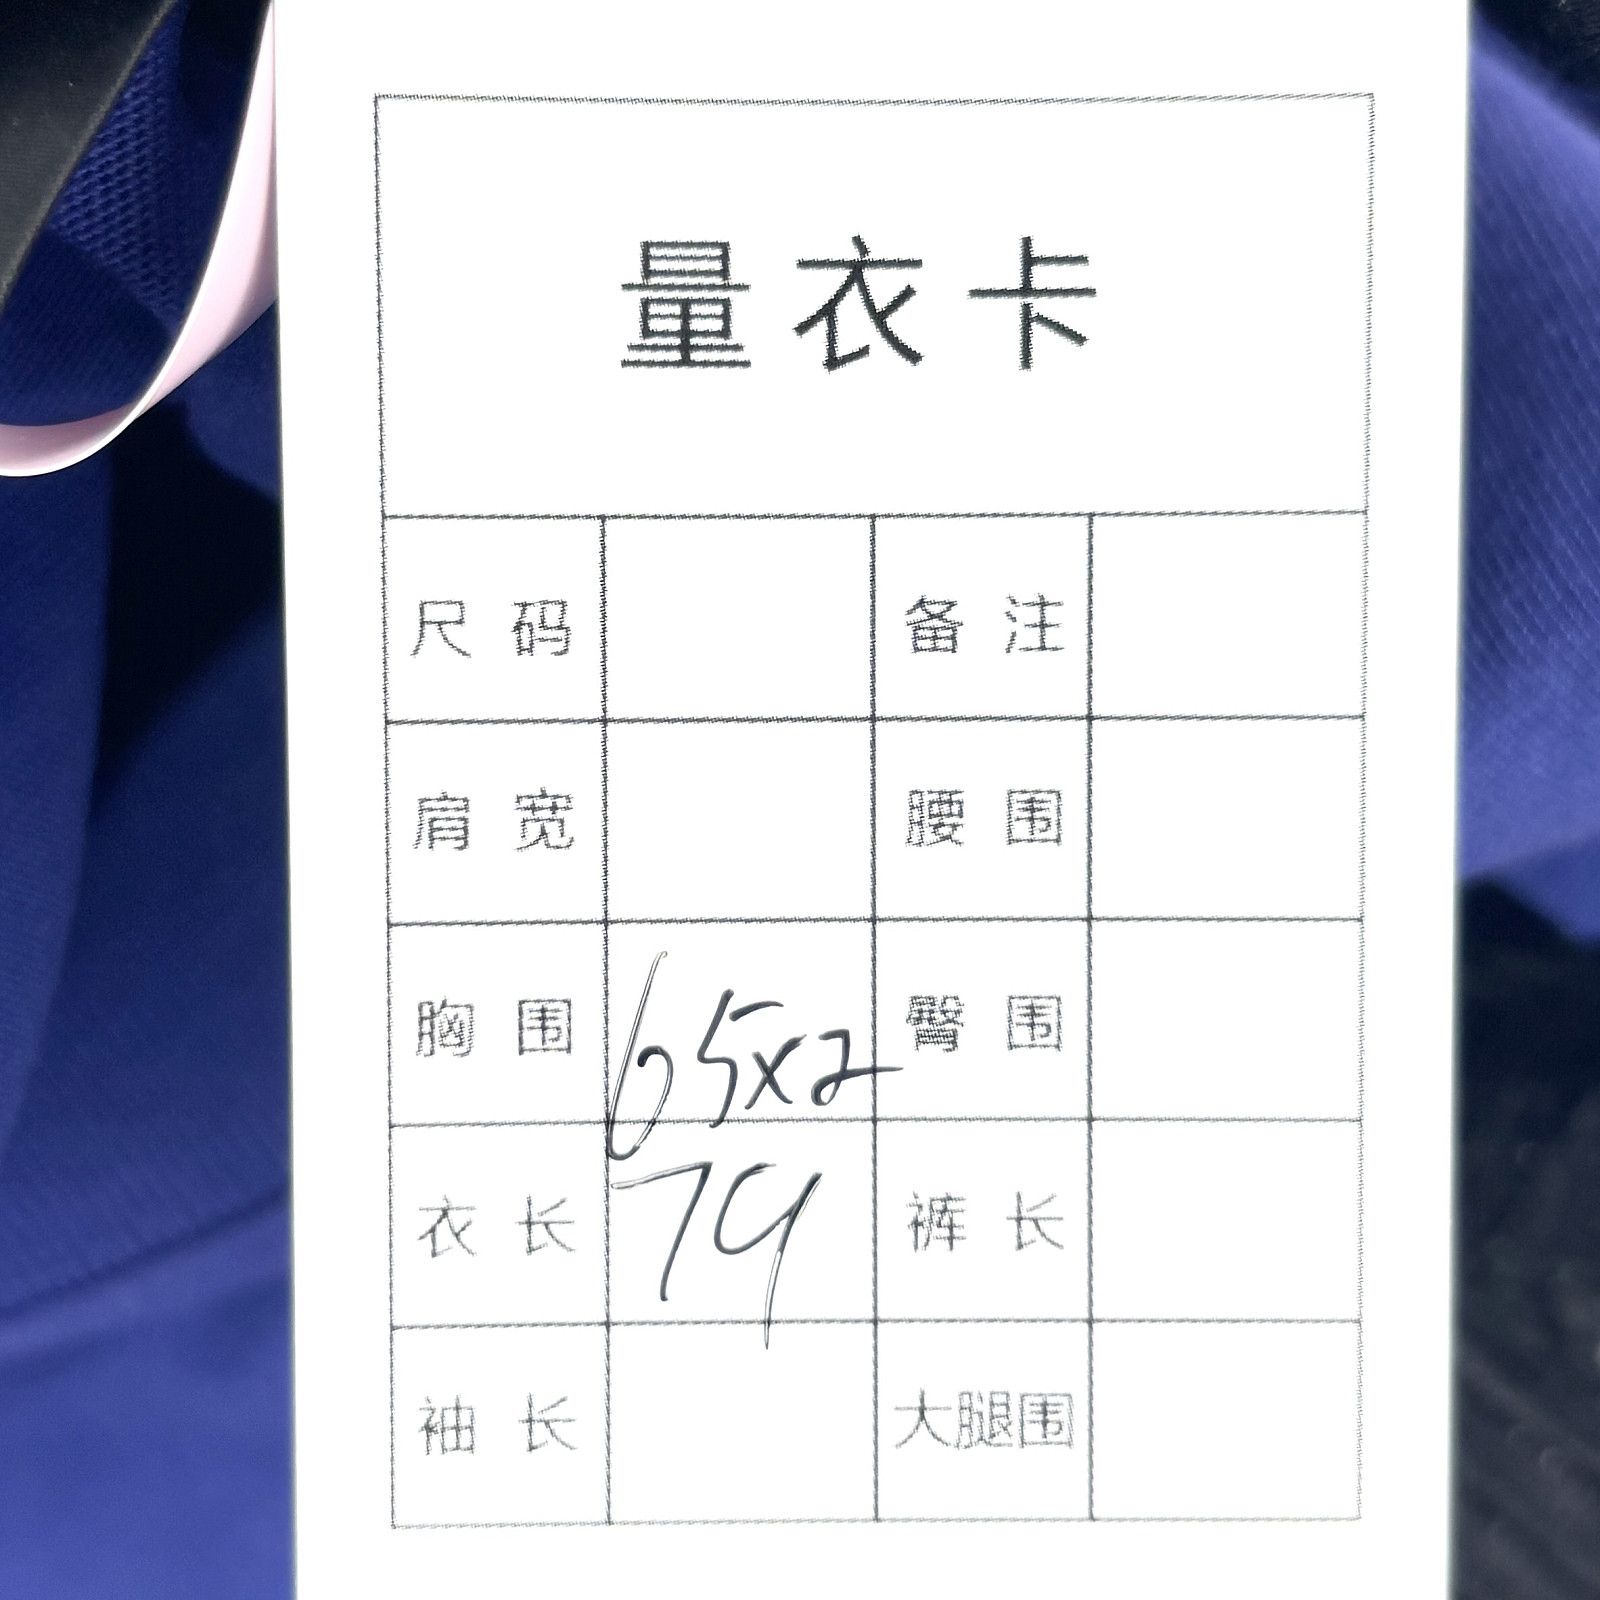 量衣卡
尺码 备注
肩宽 腰围
胸围 65x2 臀围
衣长 79 裤长
袖长 大腿围